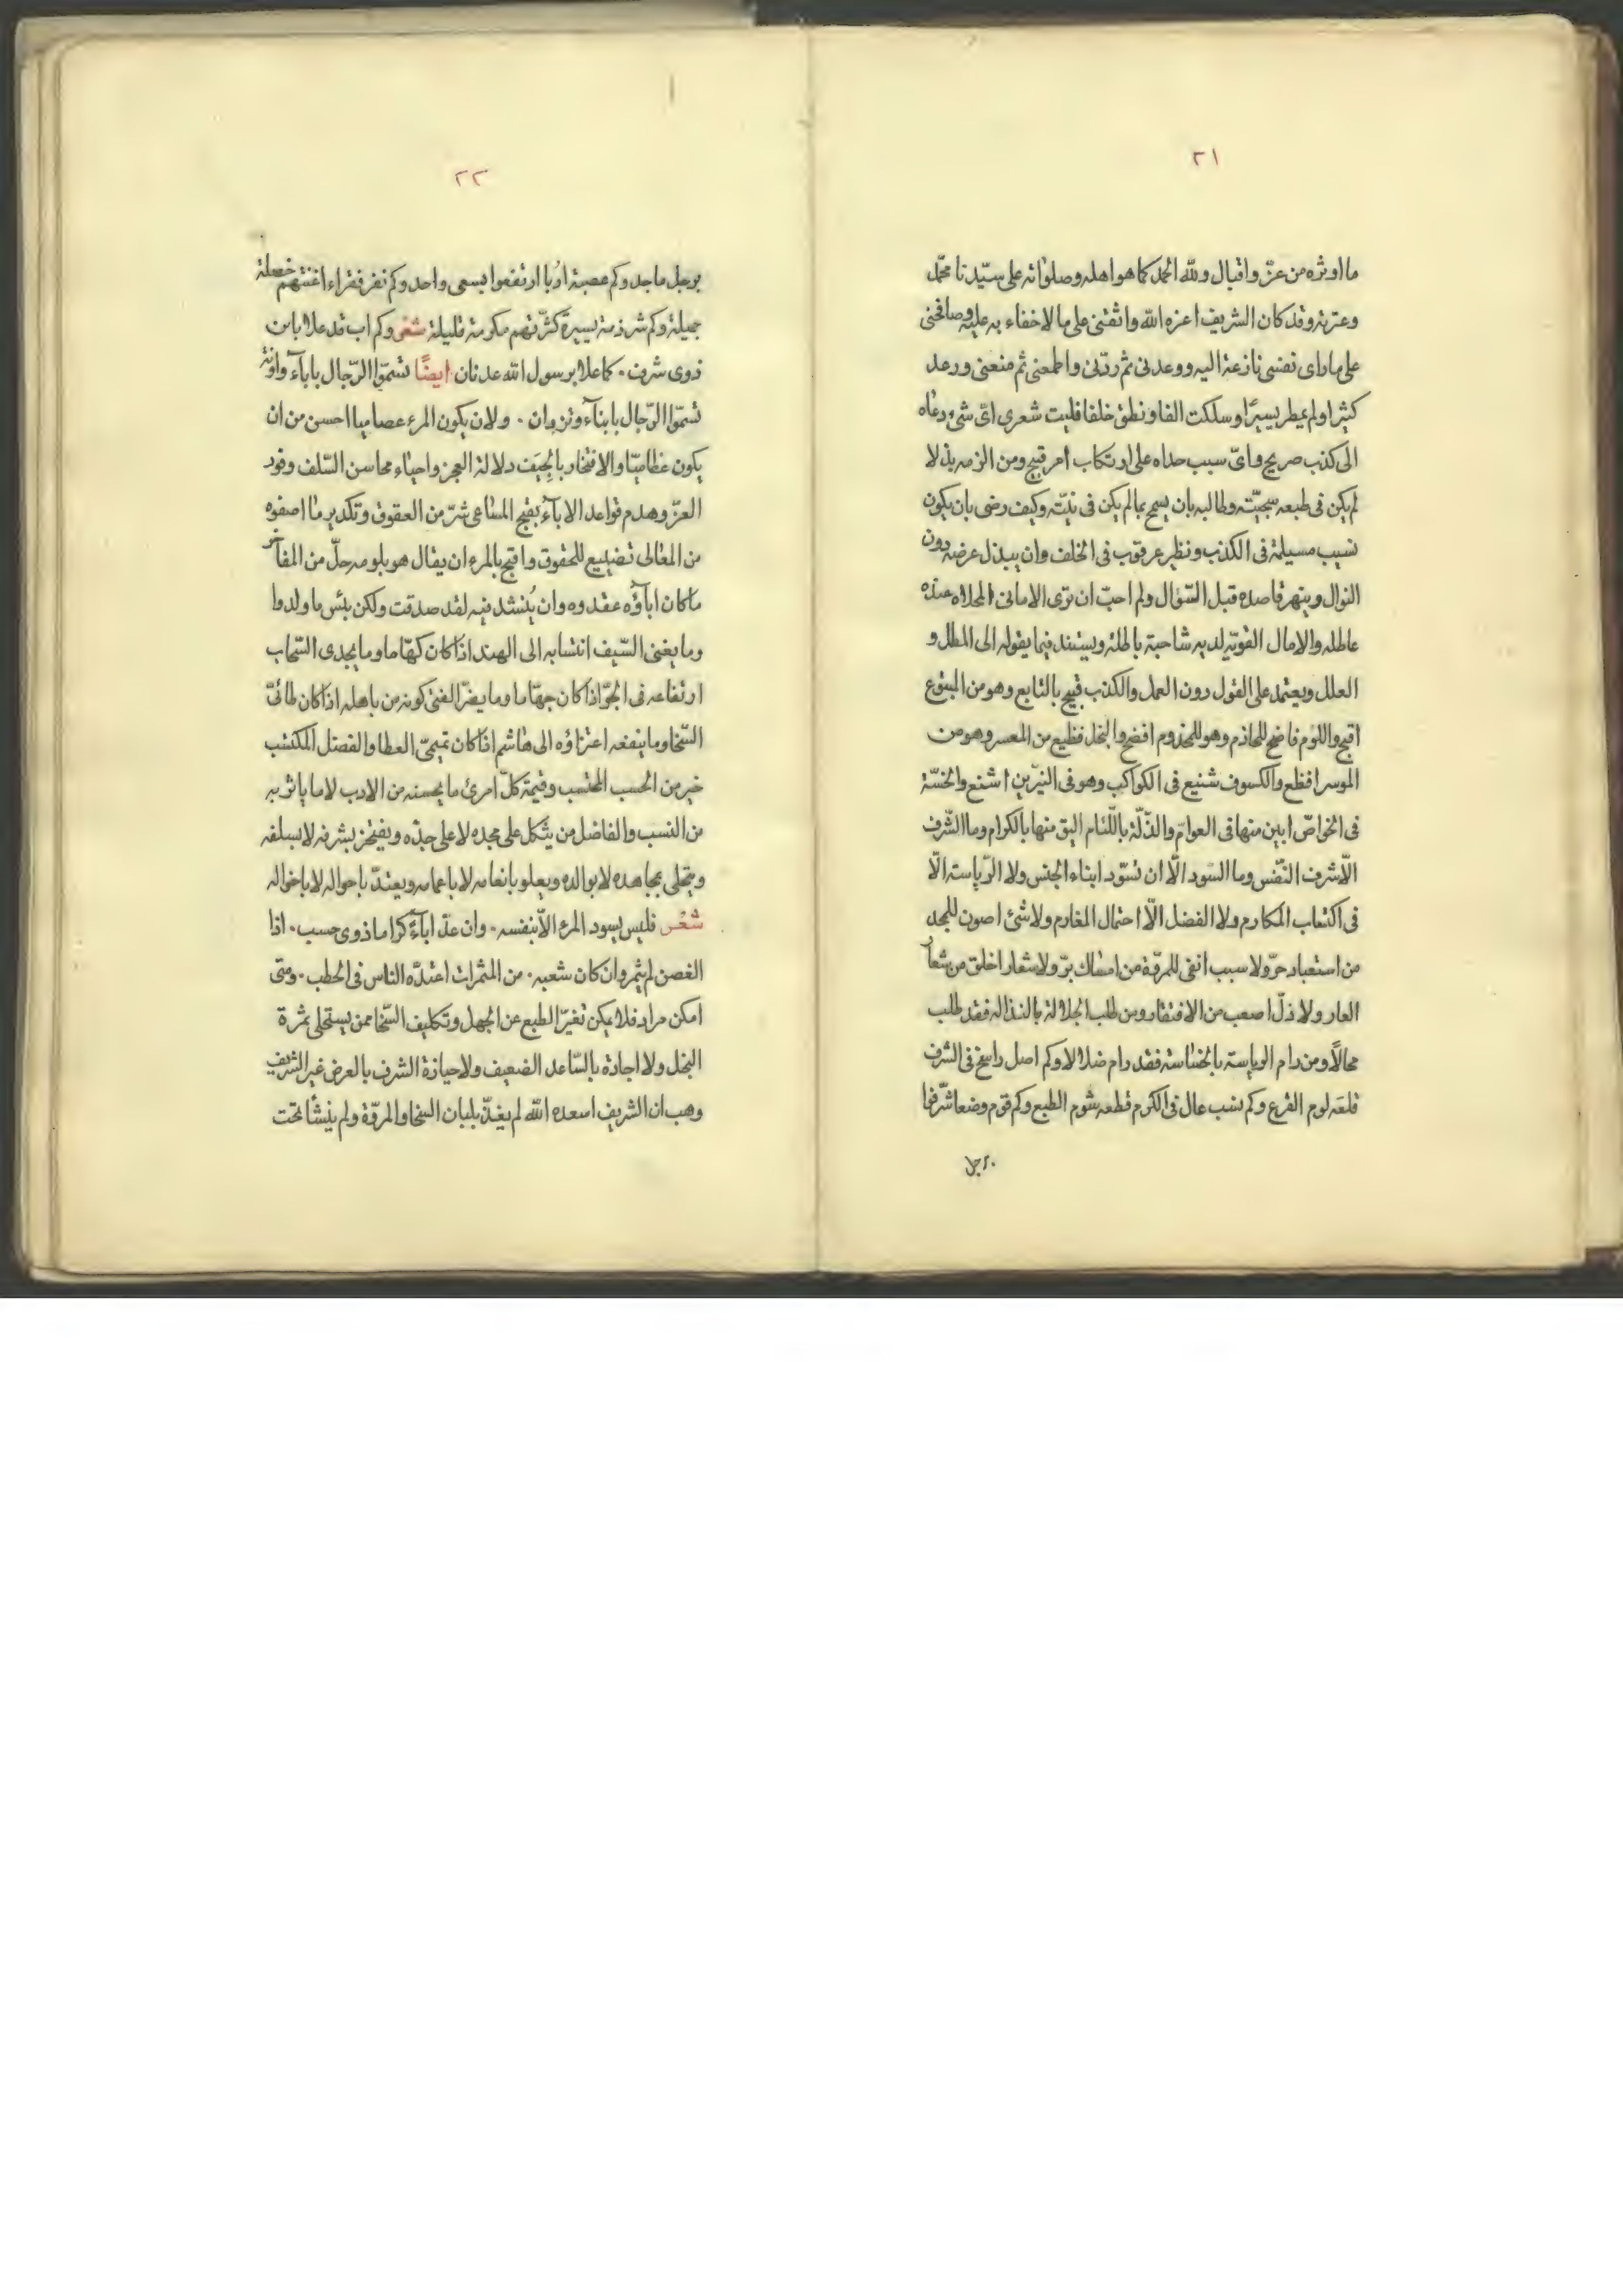 ٢١
ما اوثره من عزّ واقبال ولله الحمد كما هو اهله وصلوٰاته على سيّدنا محمّد
وعترته وقد كان الشريف اعزه الله واثقنى على ما لا خفاء به عليه وصافحنى
على ما راى نفسى نازعة اليه ووعدنى ثم ردّنى واطمعنى ثم منعنى ورعد
كثيرا ولم يمطر يسيرًا وسكت الفا ونطق خلفا فليت شعرى اىّ شىء دعاه
الى كذب صريح واىّ سبب حداه على ارتكاب امر قبيح ومن الزمه بذلا
لم يكن فى طبعه سجيّته وطالبه بان يسمح بما لم يكن فى نيّته وكيف رضى بان يكون
نسيب مسيلمة فى الكذب ونظير عرقوب فى الخلف وان يبذل عرضه دون
النوال وينهر قاصده قبل السّؤال ولم احبّ ان ترى الامانى المحلاه عنده
عاطله والامال القويّه لديه شاحبة باطلة ويستند فيما يقوله الى المطل و
العلل ويعتمد على القول دون العمل والكذب قبيح بالتابع وهو من المتبوع
اقبح واللوم فاضح للخادم وهو للمخدوم افضح والبخل فظيع من المعسر وهو من
الموسر افظع والكسوف شنيع فى الكواكب وهو فى النيّرين اشنع والخسّة
فى الخواصّ ابين منها فى العوامّ والذّلّة باللّئام اليق منها بالكرام وما الشّرف
الّا شرف النّفس وما السّود الّا ان تسوّد ابناء الجنس ولا الرّياسته الّا
فى اكتساب المكارم ولا الفضل الّا احتمال المغارم ولا شئ اصون للمجد
من استعباد حرّ ولا سبب انفى للمروّة من امساك برّ ولا شعار اخلق من شعار
العار ولا ذلّ اصعب من الافتقار ومن طلب الجلالة بالنذاله فقد طلب
محالًا ومن رام الرياسته بالخساسته فقد رام ضلالا وكم اصل راسخ فى الشرف
قلعَه لوم الفرع وكم نسب عال فى الكرم قطعه شوم الطبع وكم قوم وضعا شرّفوا
برجل
٢٢
برجل ماجد وكم عصبة ادُبا ارتفعوا بسعى واحد وكم نفر فقراء اغنتهم خصلة
جميلة وكم شرذمة يسيرة كثّرتهم مكرمة قليلة شعر وكم اب قد علا بابن
ذوى شرف ٠ كما علا برسول الله عدنان ايضًا تسموّا الرّجال باباء واونة
تسموّا الرّجال بابناء وتزدان ٠ ولان يكون المرء عصاميا احسن من ان
يكون عظاميّا والافتخار بالجِيَف دلالة العجز واحياء محاسن السّلف وفود
العزّ وهدم قواعد الاباء بقبح المساعى شرّ من العقوق وتكدير ما اصفوه
من المعٰالى تضييع للحقوق واقبح بالمرء ان يقال هو بلومه حلّ من المفاخر
ما كان اباؤه عقدوه وان يُنشد فيه لقد صدقت ولكن بئس ما ولدوا
وما يغنى السّيف انتسابه الى الهند اذا كان كهّاما وما يجدى السّحاب
ارتفاعه فى الجوّ اذا كان جهّاما وما يضرّ الفتى كونه من باهله اذا كان طائىّ
السّخا وما ينفعه اعتزاؤه الى هٰاشم اذا كان تميمىّ العطا والفضل المكتسب
خير من الحسب المحتسب وقيمة كلّ امرئ ما يحسنه من الادب لا ما ياثر به
من النسب والفاضل من يتّكل على مجده لا على جدّه ويفتخر بشرفه لا بسلفه
ويتحلى بمجاهده لا بوالده ويعلو بانعامه لا باعمامه ويعتدّ باحواله لا باخواله
شعر فليس يسود المرء الّا بنفسه ٠ وان عدّ اباءً كراما ذوى حسب ٠ اذا
الغصن لم يثمر وان كان شعبه ٠ من المثمرات اعتدّه الناس فى الحطب ٠ ومتى
امكن مراد فلا يمكن تغيّر الطبع عن الجهل وتكليف السّخا ممن يستحلى ثمرة
البخل ولا اجادة بالسّاعد الضعيف ولا حيازة الشرف بالعرض غير الشريف
وهب ان الشريف اسعده الله لم يغذّ بلبان السخا والمروّة ولم ينشأ تحت